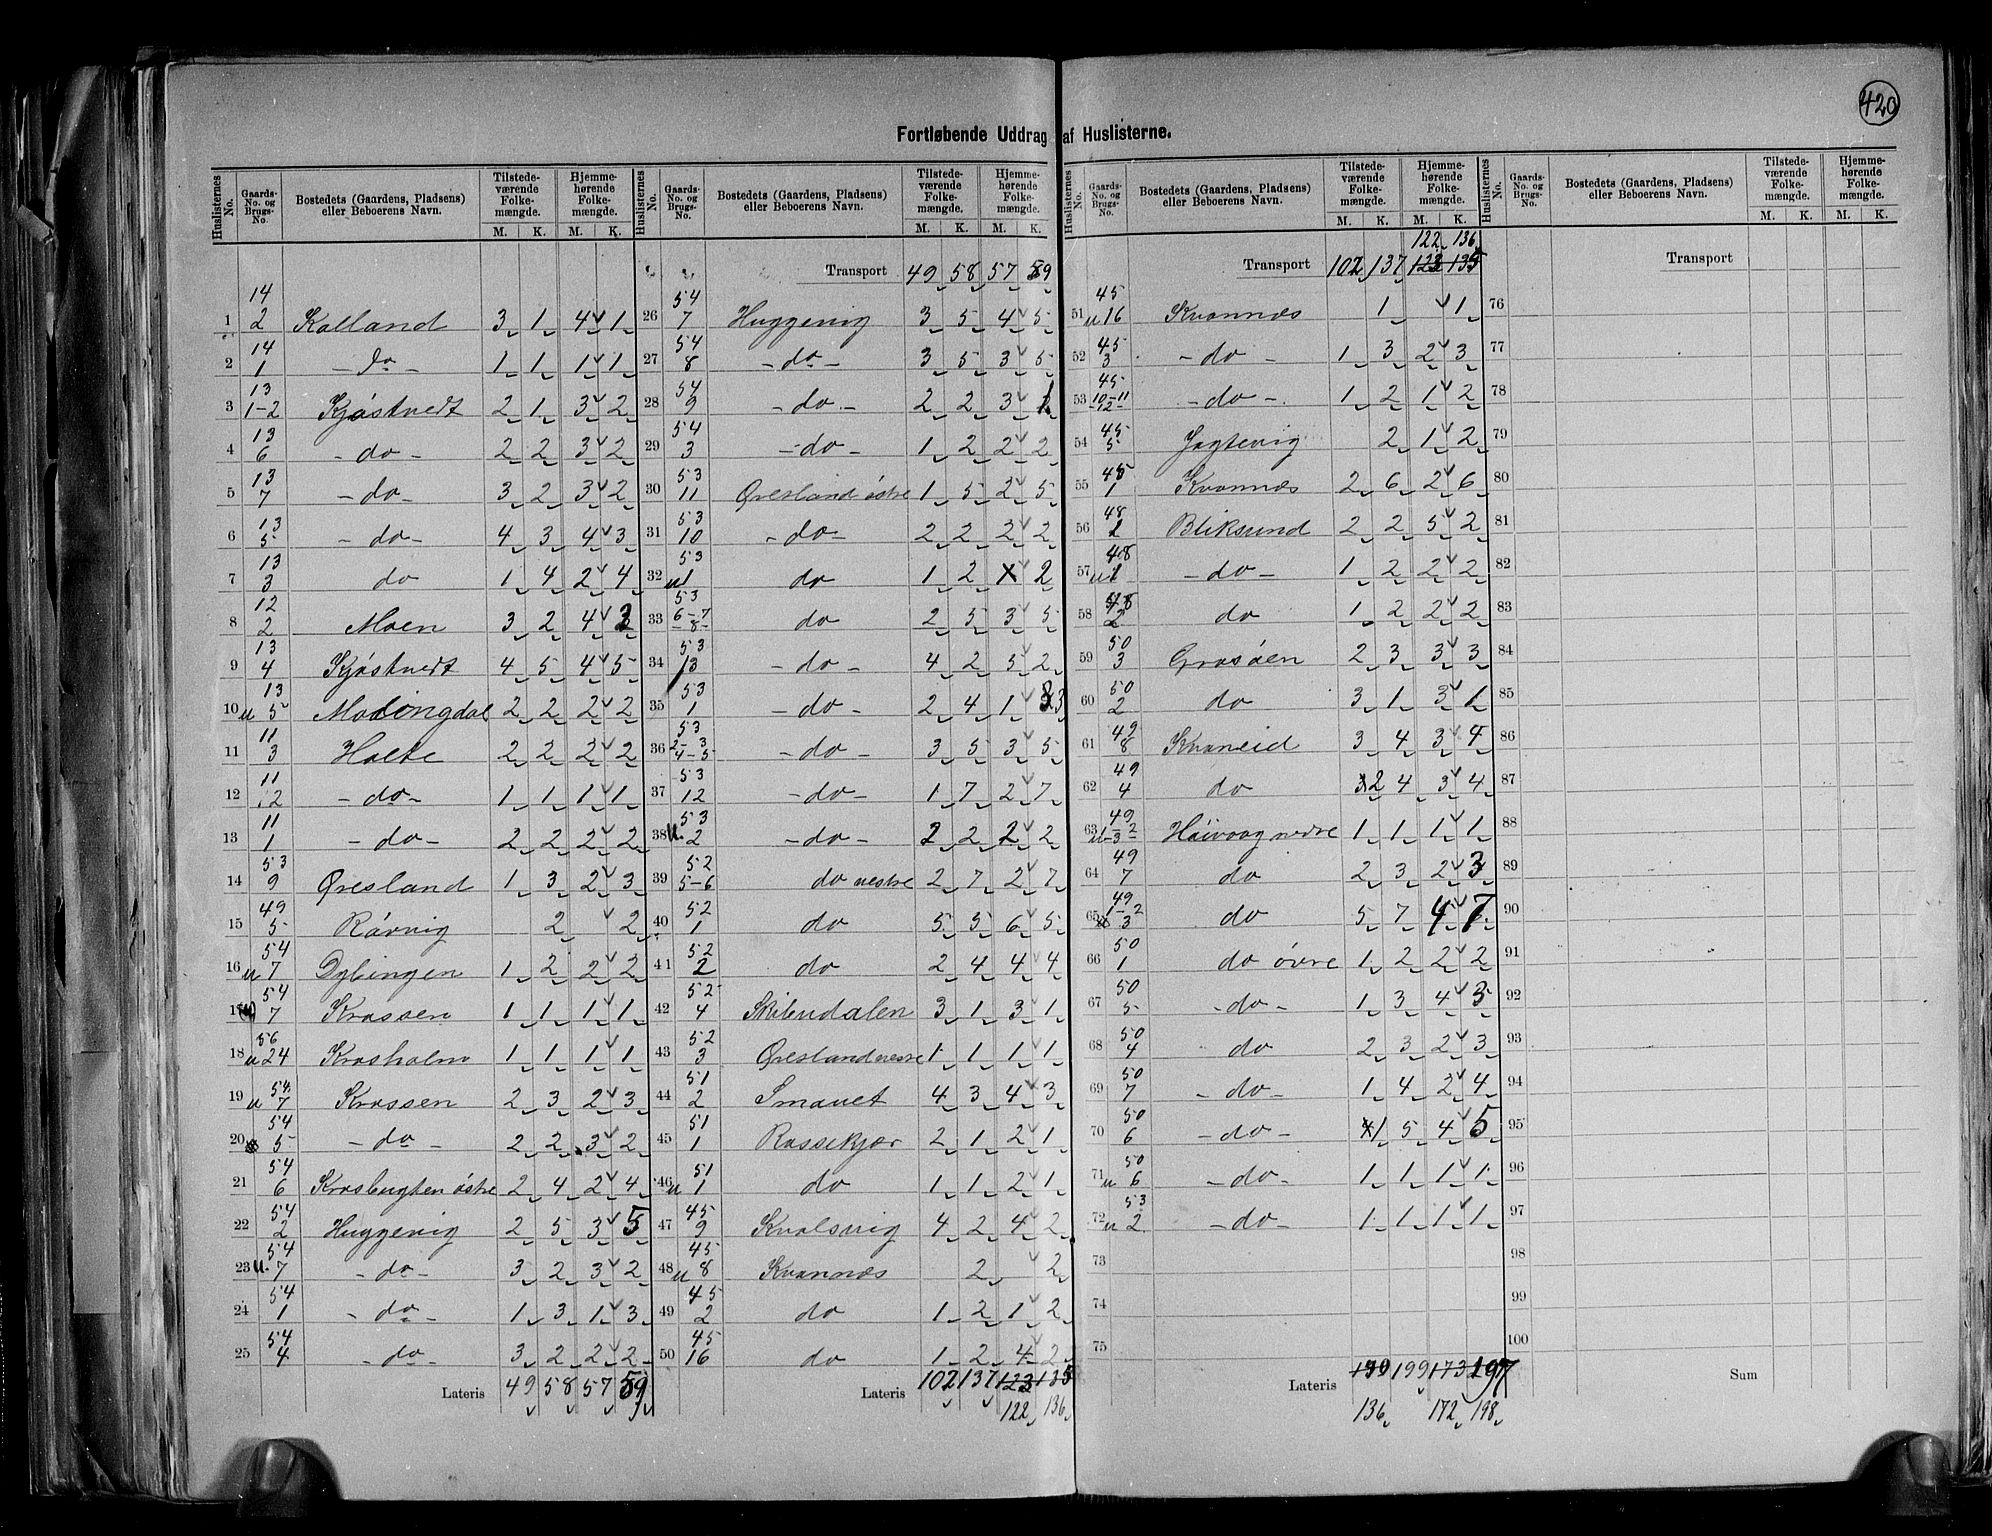 420
Fortløbende Uddrag af Huslisterne.
Huslisternes No. Gaards-No. og Brugs-No. Bostedets (Gaardens, Pladsens) eller Beboerens Navn. Tilstedeværende Folkemængde. M. K. Hjemmehørende Folkemængde. M. K.
1 14/2 Kalland 3 1 4 1
2 14/1 - do - 1 1 1 1
3 13/1-2 Kjøstvedt 2 1 3 2
4 13/6 - do - 2 2 3 2
5 13/7 - do - 3 2 3 2
6 13/5 - do - 4 3 4 3
7 13/3 do 1 4 2 4
8 12/2 Moen 3 2 4 3
9 13/4 Kjøstvedt 4 5 4 5
10 u 13/5 2 2 2 2
11 11/3 Holte 2 2 2 2
12 11/12 - do - 1 1 1 1
13 11/1 - do - 2 2 2 2
14 53/9 Øresland 1 3 2 3
15 49/5 Rørvig 2 2
16 u 54/7 Dybingen 1 2 2 2
17 54/7 Krossen 1 1 1 1
18 u 56/24 Krosholm 1 1 1 1
19 u 54/7 Krossen 2 3 2 3
20 54/5 - do - 2 2 3 2
21 54/6 Krosbugten østre 2 4 2 4
22 54/2 Huggevig 2 5 3 5
23 u. 54/7 - do - 3 2 3 2
24 54/1 - do - 1 3 1 3
25 54/4 - do - 3 2 2 2
Lateris 49 58 57 59
Huslisternes No. Gaards-No. og Brugs-No. Bostedets (Gaardens, Pladsens) eller Beboerens Navn. Tilstedeværende Folkemængde. M. K. Hjemmehørende Folkemængde. M. K.
Transport 49 58 57 59
26 54/7 Huggevig 3 5 4 5
27 54/8 - do - 3 5 3 5
28 54/9 - do - 2 2 3 1
29 54/3 - do - 1 2 2 2
30 53/11 Øresland østre 1 5 2 5
31 53/10 - do - 2 2 2 2
32 u 53/1 do 1 2 2
33 53/6-7-8- do 2 5 3 5
34 53/13 - do - 4 2 5 2
35 53/1 - do - 2 4 1 3
36 53/2-3 4-5 - do - 3 5 3 5
37 53/12 - do - 1 7 2 7
38 u. 53/2 - do - 2 2 2 2
39 52/5-6 do vestre 2 7 2 7
40 52/1 do 5 5 6 5
41 52/2 do 2 4 4 4
42 52/4 Skibendalen 3 1 3 1
43 52/3 Øresland vestre 1 1 1 1
44 51/2 Smauet 4 3 4 3
45 51/1 Rossekjær 2 1 2 1
46 u 51/1 do 1 1 2 1
47 45/9 Kvalsvig 4 2 4 2
48 u 45/8 Kvannæs 2 2
49 45/2 do 1 2 1 2
50 45/16 do 1 2 4 2
Lateris 102 137 123 135
122 136
Huslisternes No. Gaards-No. og Brugs-No. Bostedets (Gaardens, Pladsens) eller Beboerens Navn. Tilstedeværende Folkemængde. M. K. Hjemmehørende Folkemængde. M. K.
122 136
Transport 102 137 123 135
51 u 45/16 Kvannæs 1 1
52 45/3 - do - 1 3 2 3
53 45/10-11-12- - do - 1 2 1 2
54 45/5 Jagtevig 2 1 2
55 45/1 Kvannæs 2 6 2 6
56 48/1 Bliksund 2 2 5 2
57 u 48/1 - do - 1 2 2 2
58 48/2 do 1 2 2 2
59 50/3 Grosøen 2 3 3 3
60 50/2 do 3 1 3 1
61 49/8 Kvaneid 3 4 3 4
62 49/4 do 2 4 3 4
63 u 49/1-2-3- Høivaag nedre 1 1 1 1
64 49/7 do 2 3 2 3
65 49/1-2 3 do 5 7 4 7
66 50/1 do øvre 1 2 2 2
67 50/5 - do - 1 3 4 3
68 50/4 do 2 3 2 3
69 50/7 - do - 1 4 2 4
70 50/6 - do - 1 5 4 5
71 u 50/6 - do - 1 1 1 1
72 u 53/2 - do - 1 1 1 1
73
74
75
Lateris 199 173 197
136 172 198
Huslisternes No. Gaards-No. og Brugs-No. Bostedets (Gaardens, Pladsens) eller Beboerens Navn. Tilstedeværende Folkemængde. M. K. Hjemmehørende Folkemængde. M. K.
Transport
76
77
78
79
80
81
82
83
84
85
86
87
88
89
90
91
92
93
94
95
96
97
98
99
100
Sum